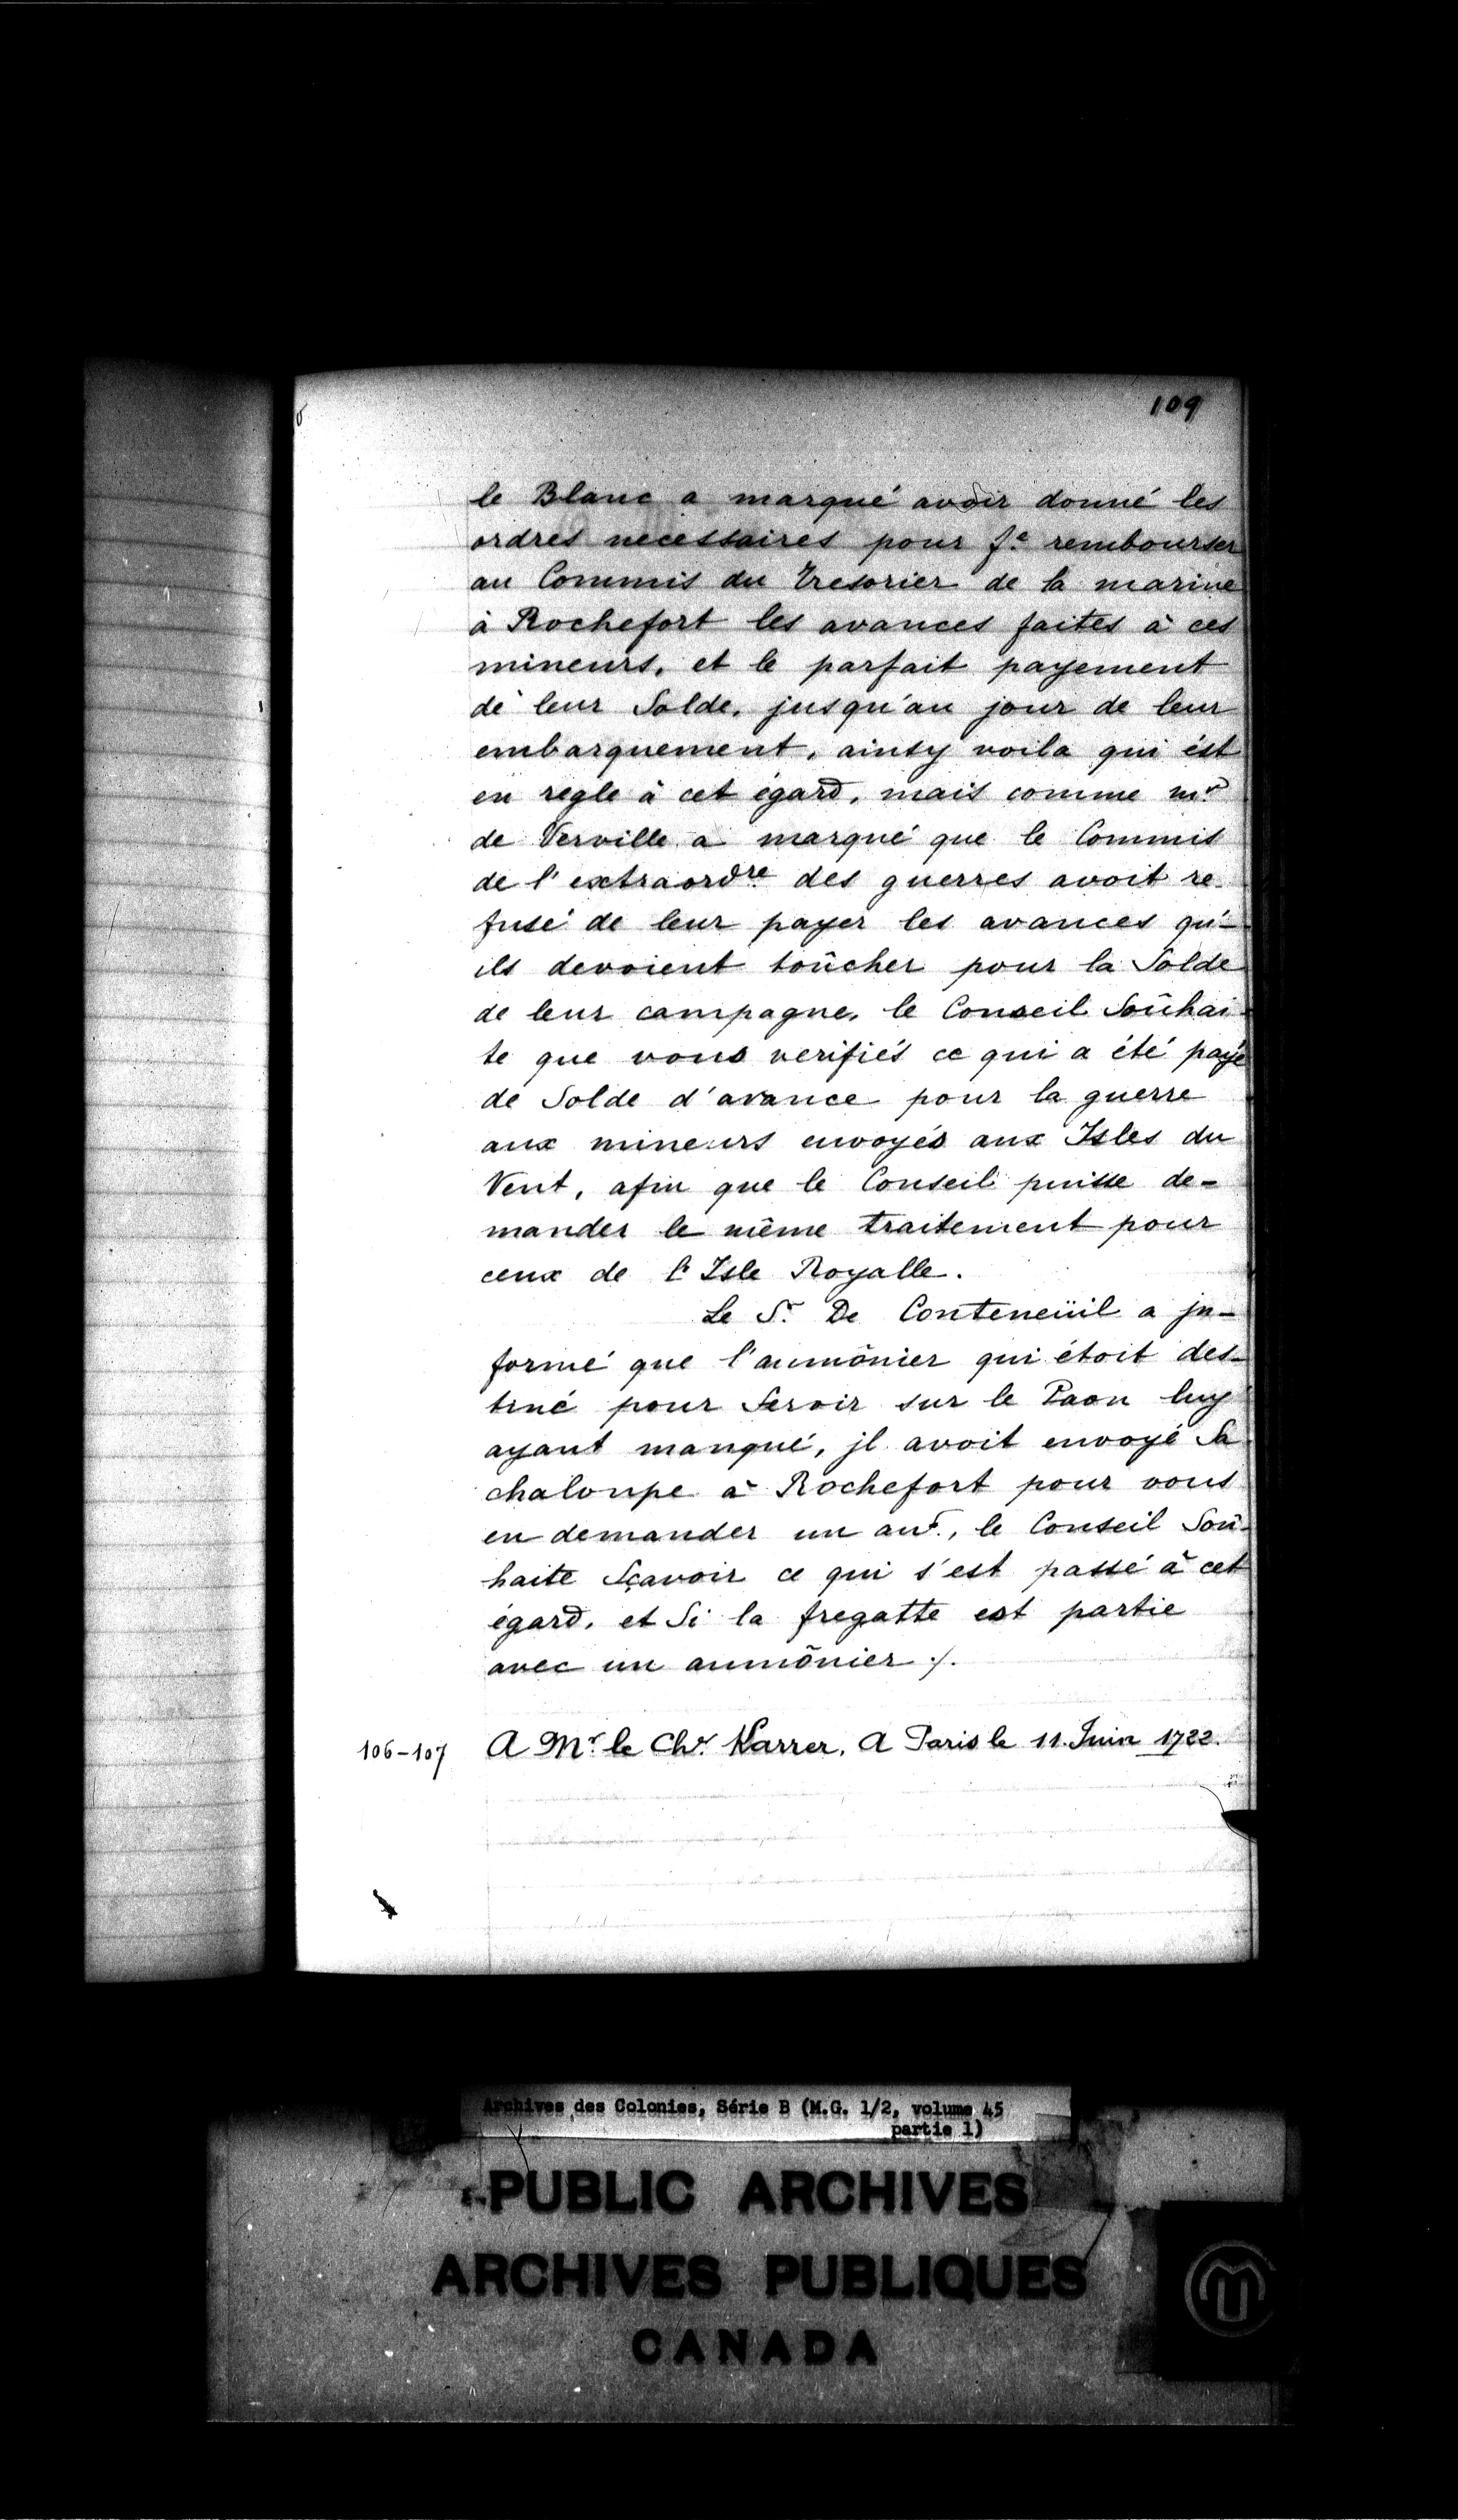 109
le Blanc a marqué avoir donné les
ordres necessaires pour f.e rembourser
au Commis du Tresorier de la marine
à Rochefort les avances faites à ces
mineurs, et le parfait payement
de leur Solde, jusqu'au jour de leur
embarquement, ainsy voila qui ést
en regle à cet égard, mais comme mr
de Verville a marqué que le Commis
de l'extraordre des guerres avoit re
fusé de leur payer les avances qu'-
ils devoient toûcher pour la Solde
de leur campagne, le Conseil Soûhai-
te que vous verifiés ce qui a été payé
de Solde d'avance pour la guerre
aux mineurs envoyés aux Isles du
Vent, afin que le Conseil puisse de-
mander le même traitement pour
ceux de l'Isle Royalle.
Le Sr. De Conteneüil a jn-
formé que l'aumônier qui étoit des-
tiné pour Servir sur le Paon luy
ayant manqué, jl avoit envoyé Sa
chaloupe à Rochefort pour vous
en demander un aut., le Conseil Soû-
haite Sçavoir ce qui s'est passé à cet
égard, et Si la fregatte est partie
avec un aumônier ./.
106-107 A Mr. le Chr. Karrer, A Paris le 11. Juin 1722.
Archives des Colonies, Série B (M.G. 1/2, volume 45
partie 1)
PUBLIC ARCHIVES
ARCHIVES PUBLIQUES
CANADA